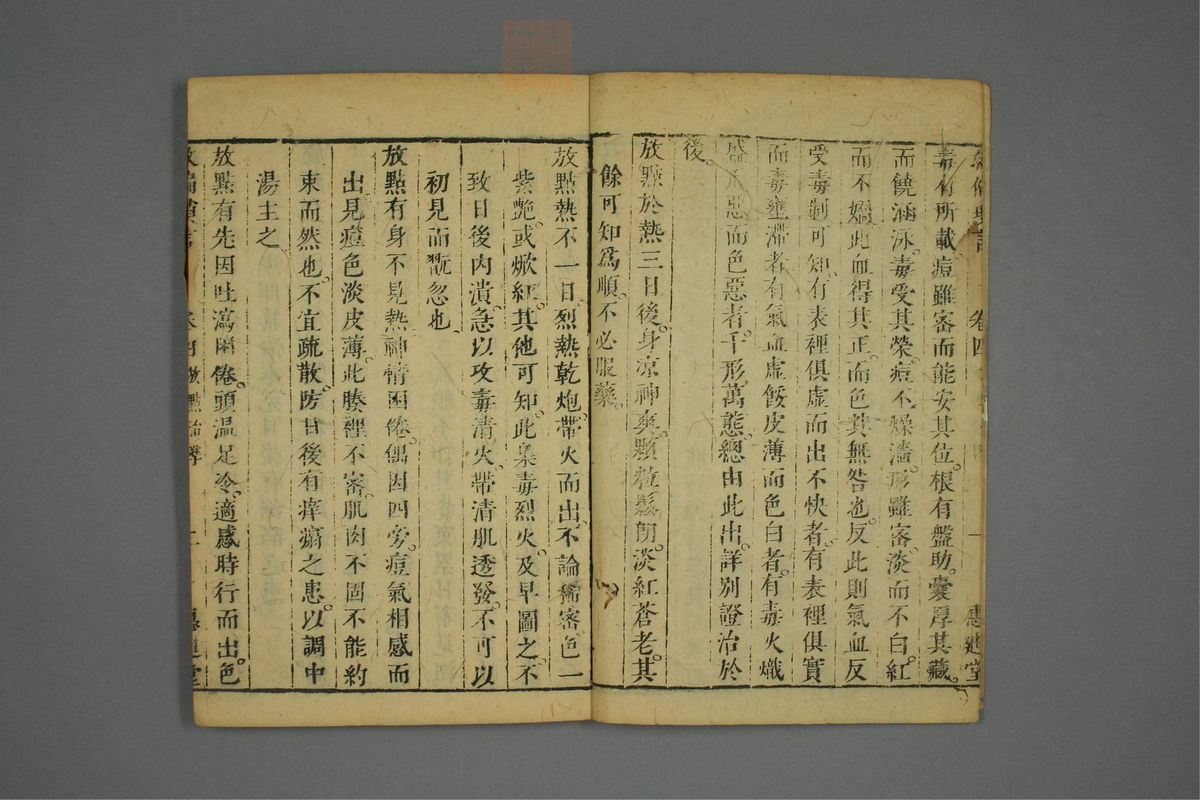 毒有所載痘雖密而能安其位根有盤助囊厚其藏
而饒涵泳毒受其榮痘不燥濇形雖密淡而不白紅
而不嬌此血得其正而色其無咎也反此則氣血反
受毒制可知有表裡俱虛而出不快者有表裡俱實
而毒壅滯者有氣血虛餒皮薄而色白者有毒火熾
盛 惡而色惡者千形萬態總由此出詳別證治於
後
放點於熱三日後身凉神爽顆粒鬆朗淡紅蒼老其
餘可知爲順不必服藥
放點熱不一日烈熱乾炮帶火而出不論稀密色一
紫艷或焮紅其他可知此梟毒烈火及早圖之不
致日後內潰急以攻毒清火帶清肌透發不可以
初見而翫忽也
放點有身不見熱神情困倦偶因四旁痘氣相感而
出見痘色淡皮薄此腠裡不密肌肉不固不能約
束而然也不宜疏散防日後有痒瀉之患以調中
湯主之
放點有先因吐瀉困倦頭溫足冷適感時行而出色